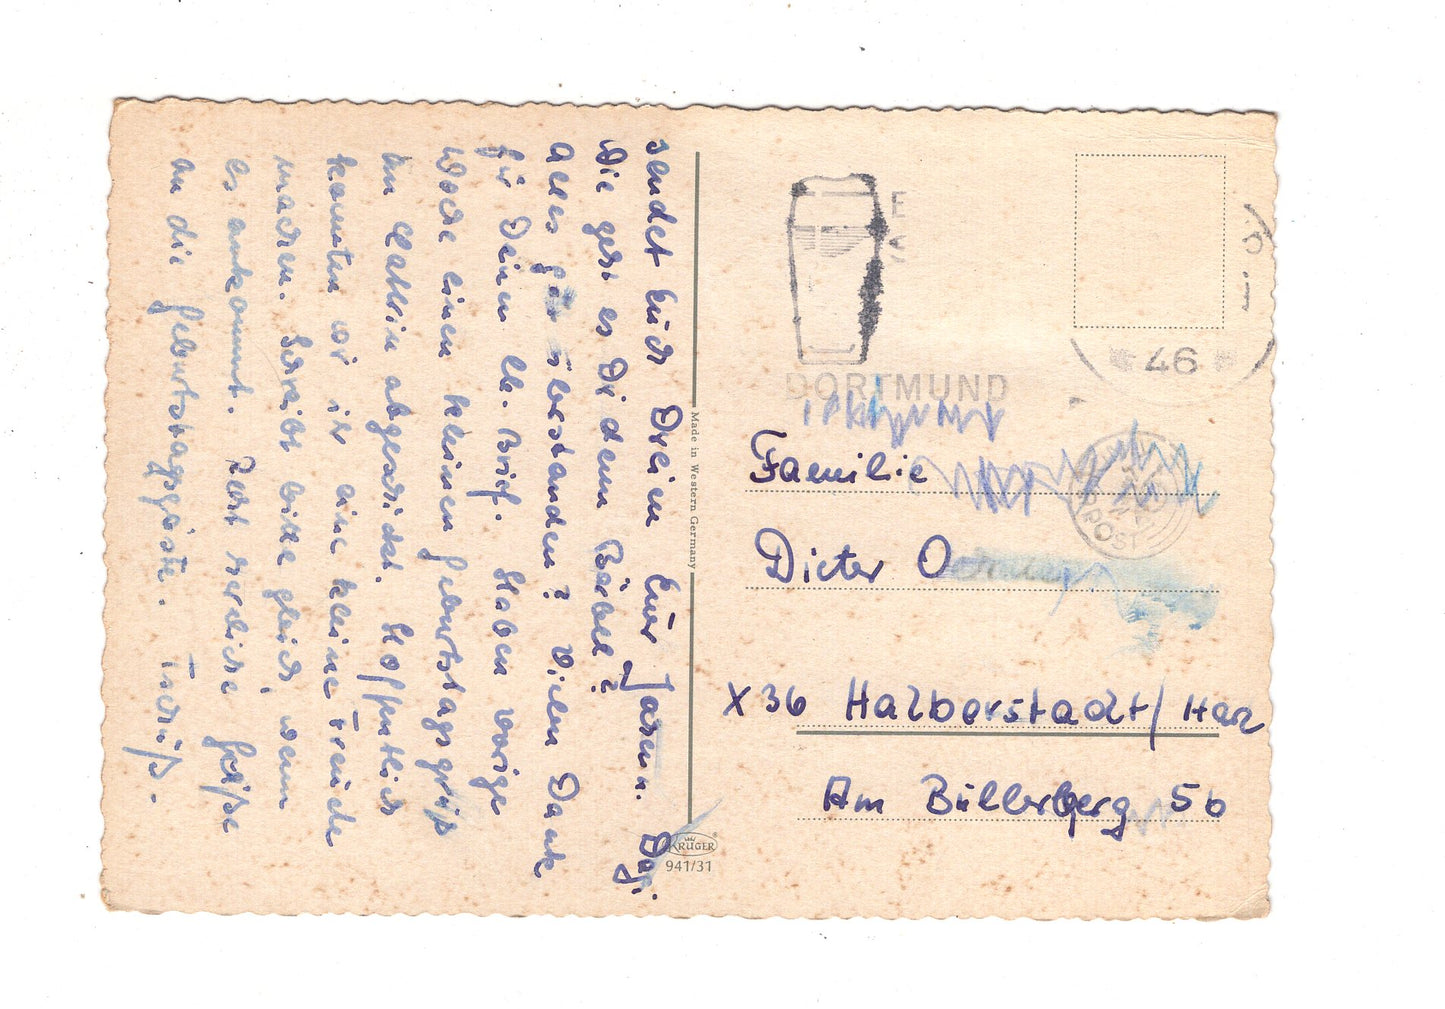 sendet Euch Dreien Eure Dag.
Wie geht es Dir denn Bärbel?
Alles gut überstanden? Vielen Dank
für Deinen lb. Brief. Haben vorige
Woche einen kleinen Geburtstagsgruß
an Cathrin abgeschickt. Hoffentlich
konnten wir ihr eine kleine Freude
machen. Schreibt bitte gleich, wenn
es ankommt. Recht herzliche Grüße
an die Geburtstagsgäste. Tschüß.
Made in Western Germany
KRÜGER
941/31
DORTMUND
46
POST
Familie
Dieter
X36 Halberstadt/Harz
Am Bullerberg 5b